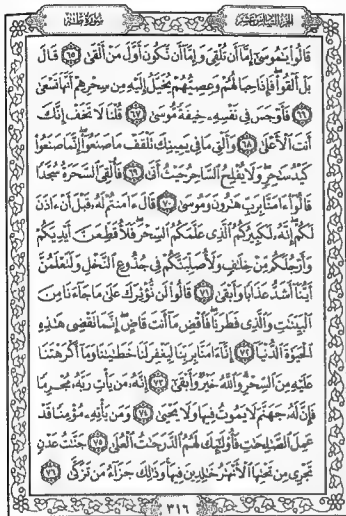 الجزء السادس عشر سورة طه
قَالُوا يَٰمُوسَىٰٓ إِمَّآ أَن تُلْقِىَ وَإِمَّآ أَن نَّكُونَ أَوَّلَ مَنْ أَلْقَىٰ ٦٥ قَالَ
بَلْ أَلْقُوا۟ فَإِذَا حِبَالُهُمْ وَعِصِيُّهُمْ يُخَيَّلُ إِلَيْهِ مِن سِحْرِهِمْ أَنَّهَا تَسْعَىٰ
٦٦ فَأَوْجَسَ فِى نَفْسِهِۦ خِيفَةً مُّوسَىٰ ٦٧ قُلْنَا لَا تَخَفْ إِنَّكَ
أَنتَ ٱلْأَعْلَىٰ ٦٨ وَأَلْقِ مَا فِى يَمِينِكَ تَلْقَفْ مَا صَنَعُوٓا۟ إِنَّمَا صَنَعُوا۟
كَيْدُ سَٰحِرٍ وَلَا يُفْلِحُ ٱلسَّاحِرُ حَيْثُ أَتَىٰ ٦٩ فَأُلْقِىَ ٱلسَّحَرَةُ سُجَّدًا
قَالُوٓا۟ ءَامَنَّا بِرَبِّ هَٰرُونَ وَمُوسَىٰ ٧٠ قَالَ ءَامَنتُمْ لَهُۥ قَبْلَ أَنْ ءَاذَنَ
لَكُمْ إِنَّهُۥ لَكَبِيرُكُمُ ٱلَّذِى عَلَّمَكُمُ ٱلسِّحْرَ فَلَأُقَطِّعَنَّ أَيْدِيَكُمْ
وَأَرْجُلَكُم مِّنْ خِلَٰفٍ وَلَأُصَلِّبَنَّكُمْ فِى جُذُوعِ ٱلنَّخْلِ وَلَتَعْلَمُنَّ
أَيُّنَآ أَشَدُّ عَذَابًا وَأَبْقَىٰ ٧١ قَالُوا۟ لَن نُّؤْثِرَكَ عَلَىٰ مَا جَآءَنَا مِنَ
ٱلْبَيِّنَٰتِ وَٱلَّذِى فَطَرَنَا فَٱقْضِ مَآ أَنتَ قَاضٍ إِنَّمَا تَقْضِى هَٰذِهِ
ٱلْحَيَوٰةَ ٱلدُّنْيَآ ٧٢ إِنَّآ ءَامَنَّا بِرَبِّنَا لِيَغْفِرَ لَنَا خَطَٰيَٰنَا وَمَآ أَكْرَهْتَنَا
عَلَيْهِ مِنَ ٱلسِّحْرِ وَٱللَّهُ خَيْرٌ وَأَبْقَىٰٓ ٧٣ إِنَّهُۥ مَن يَأْتِ رَبَّهُۥ مُجْرِمًا
فَإِنَّ لَهُۥ جَهَنَّمَ لَا يَمُوتُ فِيهَا وَلَا يَحْيَىٰ ٧٤ وَمَن يَأْتِهِۦ مُؤْمِنًا قَدْ
عَمِلَ ٱلصَّٰلِحَٰتِ فَأُو۟لَٰٓئِكَ لَهُمُ ٱلدَّرَجَٰتُ ٱلْعُلَىٰ ٧٥ جَنَّٰتُ عَدْنٍ
تَجْرِى مِن تَحْتِهَا ٱلْأَنْهَٰرُ خَٰلِدِينَ فِيهَا وَذَٰلِكَ جَزَآءُ مَن تَزَكَّىٰ ٧٦
٣١٦